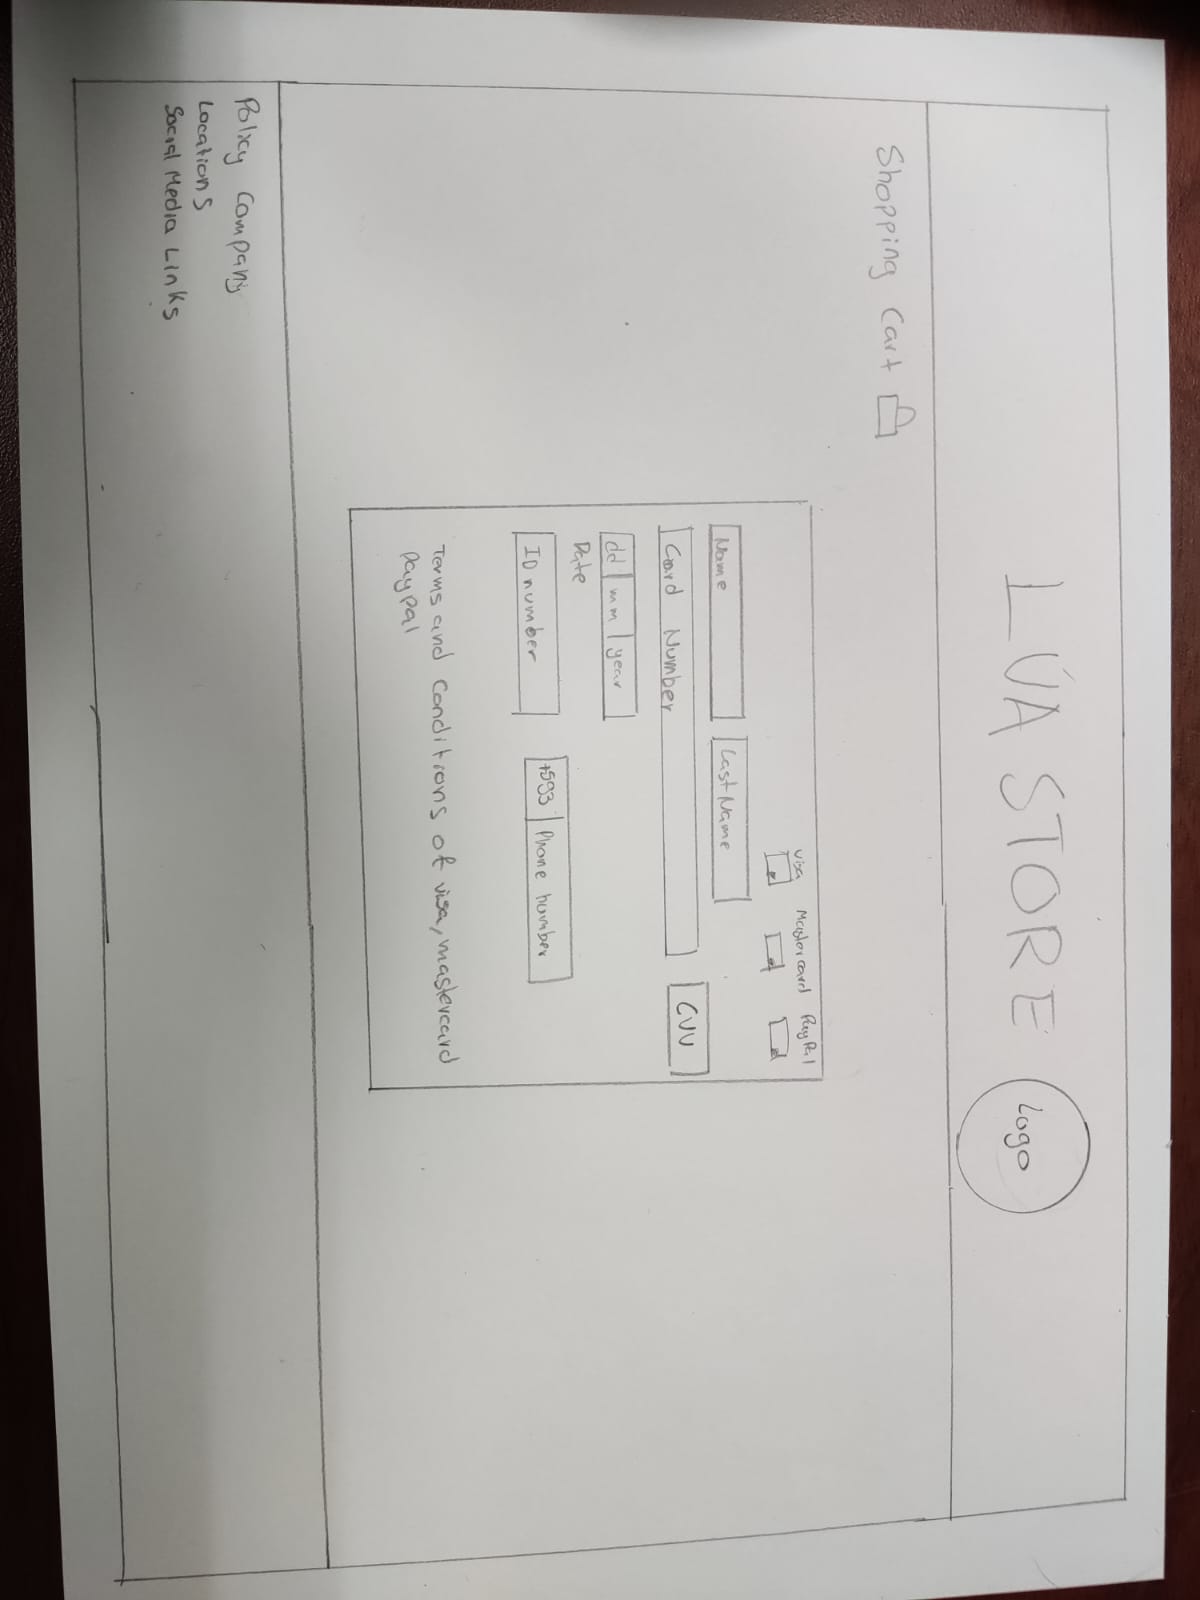 LÚA STORE
Logo
Shopping Cart
Visa Mastercard PayPal
Name Last Name
Card Number CVV
dd mm year
Date
ID number +593 Phone number
Terms and conditions of visa, mastercard
Paypal
Policy Company
Locations
Social Media Links